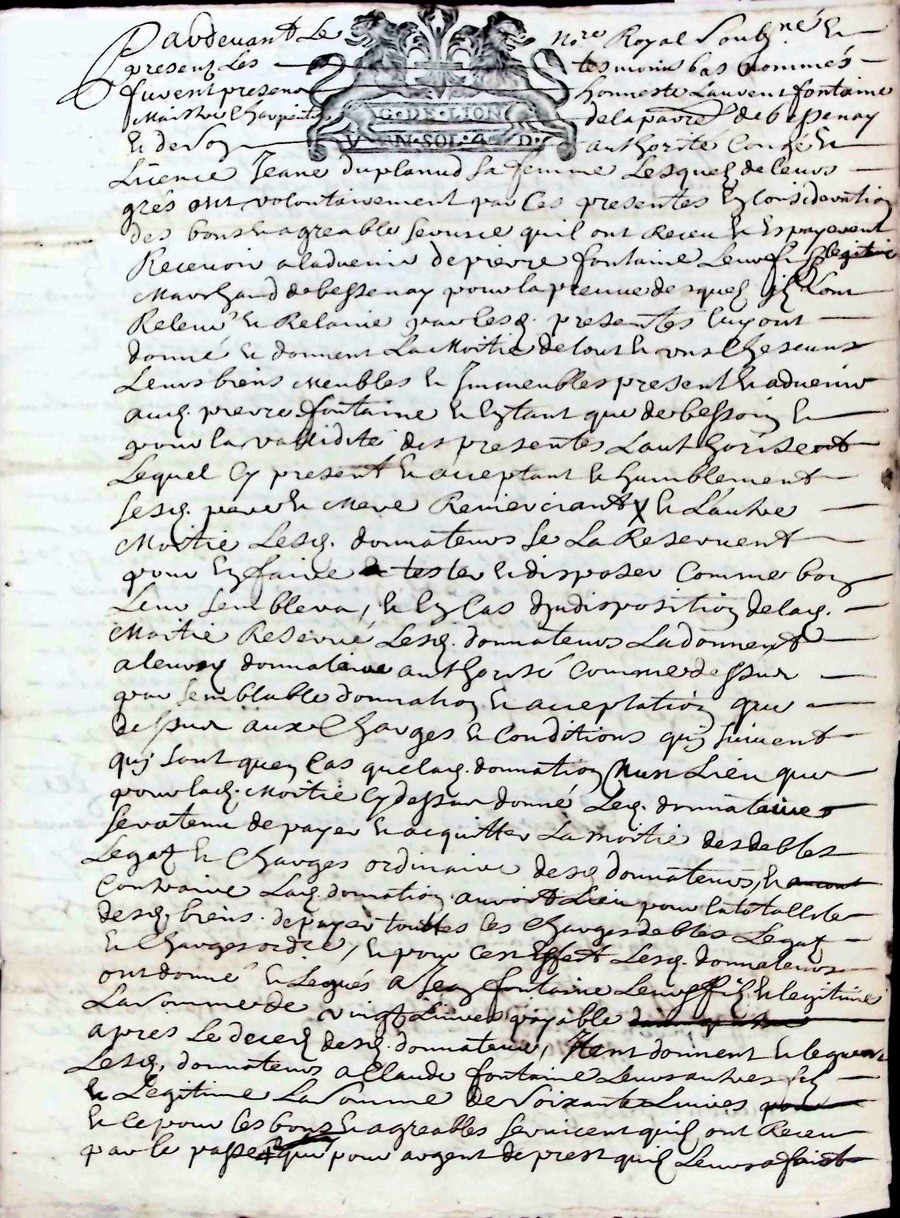 Pardevant Le No.re Royal Soubz.né Et
presenz Les tesmoins bas nommés
furent presens honneste Laurent fontaine
Maistre Charpentie de la parre de bessenay
G·DE·LION
V N·SOL·4 D·
Et de son authorité Congé Et
Licence Jeane duplanud sa femme Lesquelz de leurs
grés ont volontairement par Ces presentes En Consideration
des bons Et agreable service quil ont Receu Et Esperent
Recevoir a ladvenir de pierre fontaine Leur filz legitime
Marchand de bessenay pour la preuve desquelz ilz Lont
Releué Et Relaive par lesq. presentes luy ont
donné Et donnent La Moitié de tout Et vns Chescuns
Leurs biens Meubles Et Immeubles present Et advenir
aud. pierre fontaine Et En tant que de bessoin Et
pour la vallidité des presentes Lauthorisent
Lequel Cy present Et acceptant Et humblement
sesd. pere Et Mere Remerciant Et Lautre
Moitié Lesd. donnateurs se La Reservent
pour En faire tester Et disposer Comme bon
Leur semblera, Et En Cas dindisposition de lad.
Moitié Reservé Lesd. donnateurs La donnent
a leurd donnataire authorisé Comme dessur
par semblable donnation Et acceptation que
dessur aux Charges Et Conditions quj suivent
quj sont quen Cas que lad. donnation Lieu que
pour lad. Moitié Cy dessur donné Led. donnataire
sera tenu de payer Et acquitter La moitié des debtes
Legatz Et Charges ordinaire desd donnateurs, Et
Contraire Lad. donnation auroit Lieu pour la totallité
desd. biens de payer touttes les Charges debtes Legatz
Et Charges ordre, Et pour Cest Effect Lesd. donnateurs
ont donné Et Legués a Jean fontaine Leur filz Et legitime
La somme de vingt Livres payable
apres Le decez desd. donnateurs, Item donnent Et leguent
Lesd. donnateurs a Claude fontaine Leurs autres filz
Et Legitime La somme de soixante Livres
Et ce pour les bons Et agreables services quilz ont Receu
par le passe que pour argent de prest quilz Leurs a faict